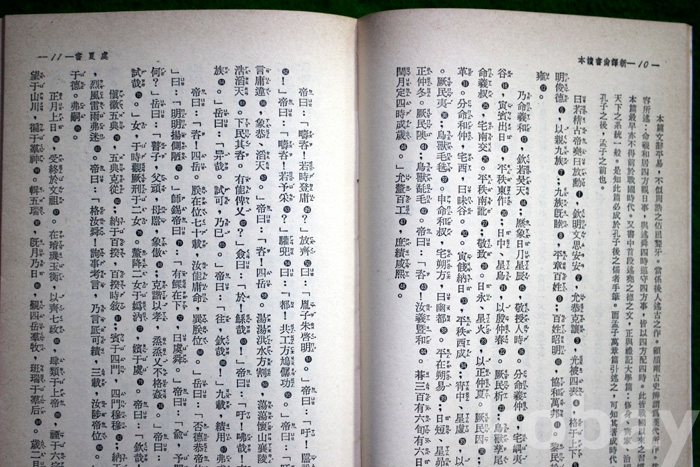 本讀書尚譯新—10—
本篇文辭平易，不似周誥之佶屈聱牙，當係後人述古之作。顧頡剛古史辨
容所述：命羲和居四方觀日事，與述舜四時巡守四方事，皆以四方配四時。此
本篇最早亦不得前於戰國時代。又書中首段述堯之德之文，正與禮記大學言：修身、齊家、治
天下之系統一般。是知此篇必成於孔子後之儒者手筆，而孟子萬章篇引述之，可知其著成時代
孔子之後，孟子之前也。
曰若稽古：帝堯曰放勳，欽明文思安安，允恭克讓；光被四表，格于上下。
明俊德，以親九族；九族既睦，平章百姓；百姓昭明，協和萬邦。
雍。
乃命羲和，欽若昊天；厤象日月星辰，敬授人時。分命羲仲，宅嵎夷
谷。寅賓出日，平秩東作；日中、星鳥，以殷仲春。厥民析；鳥獸孳尾
命羲叔，宅南交。平秩南訛；敬致。日永、星火，以正仲夏。厥民因；
革。分命和仲，宅西，曰昧谷。寅餞納日，平秩西成；宵中、星虛，
。厥民夷；鳥獸毛毨。申命和叔，宅朔方，曰幽都。平在朔易；日短、星昴
正仲冬。厥民隩；鳥獸氄毛。帝曰：「咨！汝羲暨和。朞三百有六旬有六日
閏月定四時成歲。」允釐百工，庶績咸熙。
—11—書夏虞
帝曰：「疇咨若時登庸？」放齊曰：「胤子朱啓明。」帝曰：「吁！嚚訟
？」帝曰：「疇咨！若予采？」驩兜曰：「都！共工方鳩僝功。」帝曰：「
言庸違，象恭、滔天。」帝曰：「咨！四岳。湯湯洪水方割，蕩蕩懷山襄陵
浩滔天。下民其咨。有能俾乂？」僉曰：「於！鯀哉！」帝曰：「吁！咈哉！
族。」岳曰：「异哉。試可，乃已。」帝曰：「往，欽哉！」九載，績用弗
帝曰：「咨！四岳。朕在位七十載，汝能庸命，巽朕位。」岳曰：「否德忝帝
」曰：「明明揚側陋。」師錫帝曰：「有鰥在下，曰虞舜。」帝曰：「俞，予聞
何？」岳曰：「瞽子，父頑，母嚚，象傲；克諧以孝，烝烝乂不格姦。」帝曰
試哉。」女，于時觀厥刑于二女。釐降二女于嬀汭，嬪于虞。帝曰：
愼徽五典，五典克從；納于百揆，百揆時敘。賓于四門，四門穆穆。納于
烈風雷雨弗迷。帝曰：「格汝舜！詢事考言，乃言厎可績，三載，汝陟帝位。
于德，弗嗣。
正月上日，受終於文祖。在璿璣玉衡，以齊七政。肆類于上帝，禋于六宗
望于山川，徧于羣神。輯五瑞。旣月乃日，覲四岳羣牧，班瑞于羣后。歲二